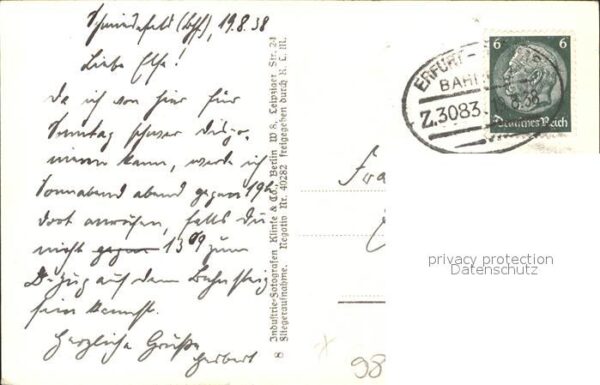 Schmiedefeld (Bhf.), 19.8.38
Liebe Else!
Da ich von hier für
Sonntag schwer dispo-
nieren kann, werde ich
Sonnabend abend gegen 19h
dort anrufen, falls du
nicht gegen 13 09 zum
D-Zug auf dem Bahnsteig
sein kannst.
Herzliche Grüße
Herbert
8 Industrie-Fotografen Klinke & Co., Berlin W 8, Leipziger Str. 24
Fliegeraufnahme. Negativ Nr. 40282 freigegeben durch R. L. M.
ERFURT-
BAHN
Z.3083
8.38
6 6
Deutsches Reich
Fra
98
privacy protection
Datenschutz